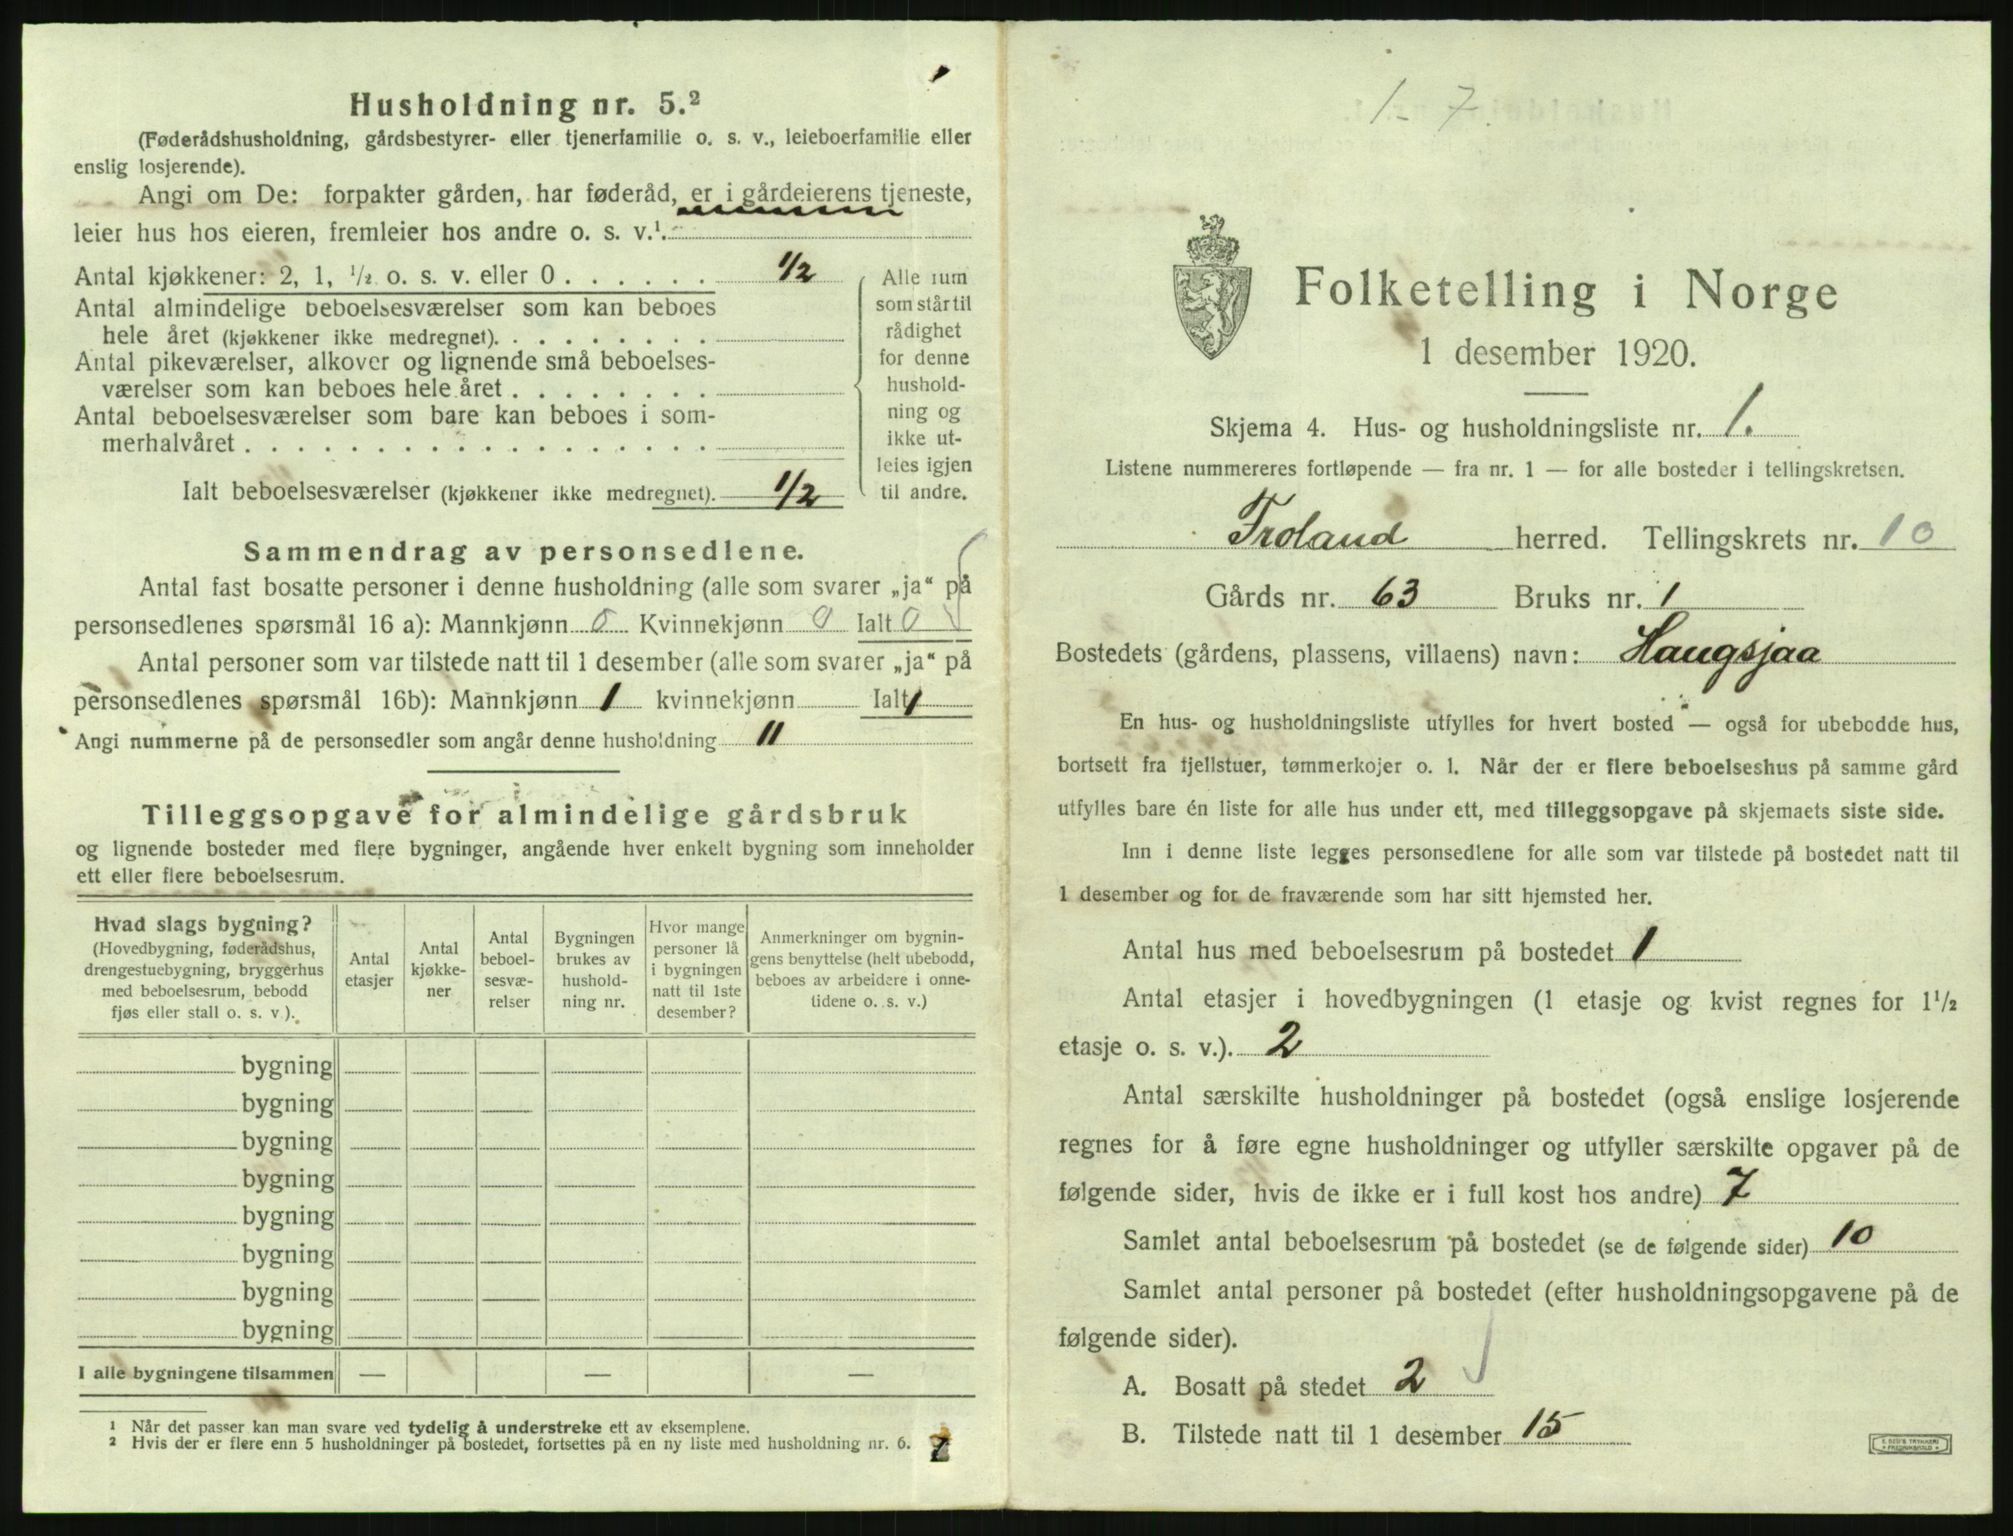 Husholdning nr. 5.²
(Føderådshusholdning, gårdsbestyrer- eller tjenerfamilie o. s. v., leieboerfamilie eller
enslig losjerende).
Angi om De: forpakter gården, har føderåd, er i gårdeierens tjeneste,
leier hus hos eieren, fremleier hos andre o. s. v.¹.
Antal kjøkkener: 2, 1, ¹/₂ o. s. v. eller 0 . . . . . . 1/2
Antal almindelige beboelsesværelser som kan beboes
hele året (kjøkkener ikke medregnet). . . . . . . . .
Antal pikeværelser, alkover og lignende små beboelses-
værelser som kan beboes hele året . . . . . . . .
Antal beboelsesværelser som bare kan beboes i som-
merhalvåret . . . . . . . . . . . . . . . . . .
Ialt beboelsesværelser (kjøkkener ikke medregnet). 1/2
Alle rum
som står til
rådighet
for denne
hushold-
ning og
ikke ut-
leies igjen
til andre.
Sammendrag av personsedlene.
Antal fast bosatte personer i denne husholdning (alle som svarer „ja“ på
personsedlenes spørsmål 16 a): Mannkjønn 0 Kvinnekjønn 0 Ialt 0
Antal personer som var tilstede natt til 1 desember (alle som svarer „ja“ på
personsedlenes spørsmål 16b): Mannkjønn 1 kvinnekjønn Ialt 1
Angi nummerne på de personsedler som angår denne husholdning 11
Tilleggsopgave for almindelige gårdsbruk
og lignende bosteder med flere bygninger, angående hver enkelt bygning som inneholder
ett eller flere beboelsesrum.
Hvad slags bygning?
(Hovedbygning, føderådshus,
drengestuebygning, bryggerhus
med beboelsesrum, bebodd
fjøs eller stall o. s. v ).
Antal
etasjer
Antal
kjøkke-
ner
Antal
beboel-
sesvæ-
relser
Bygningen
brukes av
hushold-
ning nr.
Hvor mange
personer lå
i bygningen
natt til 1ste
desember?
Anmerkninger om bygnin-
gens benyttelse (helt ubebodd,
beboes av arbeidere i onne-
tidene o. s. v.)
bygning
bygning
bygning
bygning
bygning
bygning
bygning
bygning
I alle bygningene tilsammen — — —
¹ Når det passer kan man svare ved tydelig å understreke ett av eksemplene.
² Hvis der er flere enn 5 husholdninger på bostedet, fortsettes på en ny liste med husholdning nr. 6.
1 - 7.
Folketelling i Norge
1 desember 1920.
Skjema 4. Hus- og husholdningsliste nr. 1.
Listene nummereres fortløpende — fra nr. 1 — for alle bosteder i tellingskretsen.
Froland herred. Tellingskrets nr. 10
Gårds nr. 63 Bruks nr. 1
Bostedets (gårdens, plassens, villaens) navn: Haugsjaa
En hus- og husholdningsliste utfylles for hvert bosted — også for ubebodde hus,
bortsett fra fjellstuer, tømmerkojer o. l. Når der er flere beboelseshus på samme gård
utfylles bare én liste for alle hus under ett, med tilleggsopgave på skjemaets siste side.
Inn i denne liste legges personsedlene for alle som var tilstede på bostedet natt til
1 desember og for de fraværende som har sitt hjemsted her.
Antal hus med beboelsesrum på bostedet 1
Antal etasjer i hovedbygningen (1 etasje og kvist regnes for 1¹/₂
etasje o. s. v.). 2
Antal særskilte husholdninger på bostedet (også enslige losjerende
regnes for å føre egne husholdninger og utfyller særskilte opgaver på de
følgende sider, hvis de ikke er i full kost hos andre) 7
Samlet antal beboelsesrum på bostedet (se de følgende sider) 10
Samlet antal personer på bostedet (efter husholdningsopgavene på de
følgende sider).
A. Bosatt på stedet 2
B. Tilstede natt til 1 desember 15